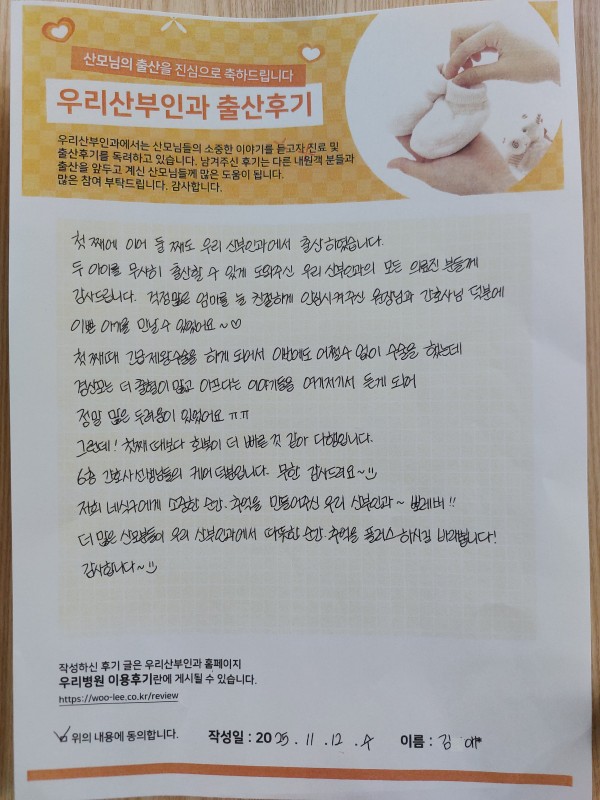 산모님의 출산을 진심으로 축하드립니다
우리산부인과 출산후기
우리산부인과에서는 산모님들의 소중한 이야기를 듣고자 진료 및
출산후기를 독려하고 있습니다. 남겨주신 후기는 다른 내원객 분들과
출산을 앞두고 계신 산모님들께 많은 도움이 됩니다.
많은 참여 부탁드립니다. 감사합니다.
첫째에 이어 둘째도 우리 산부인과에서 출산하였습니다.
두 아이를 무사히 출산할 수 있게 도와주신 우리 산부인과의 모든 의료진 분들께
감사드립니다. 걱정많은 엄마를 늘 친절하게 안심시켜주신 원장님과 간호사님 덕분에
이쁜 아기를 만날 수 있었어요~♡
첫째때 긴급제왕수술을 하게 되어서 이번에도 어쩔수 없이 수술을 했는데
경산모는 더 출혈이 많고 아프다는 이야기들을 여기저기서 듣게 되어
정말 많은 두려움이 있었어요 ㅠㅠ
그런데! 첫째때보다 회복이 더 빠른 것 같아 다행입니다.
6층 간호사선생님들의 케어 덕분입니다. 무한 감사드려요~
저희 네식구에게 소중한 순간·추억을 만들어주신 우리 산부인과~ 뽀레버!!
더 많은 산모분들이 우리 산부인과에서 따뜻한 순간·추억을 플러스 하시길 바래봅니다!
감사합니다~
작성하신 후기 글은 우리산부인과 홈페이지
우리병원 이용후기란에 게시될 수 있습니다.
https://woo-lee.co.kr/review
위의 내용에 동의합니다. 작성일 : 2025. 11. 12. 수 이름 : 김 애*